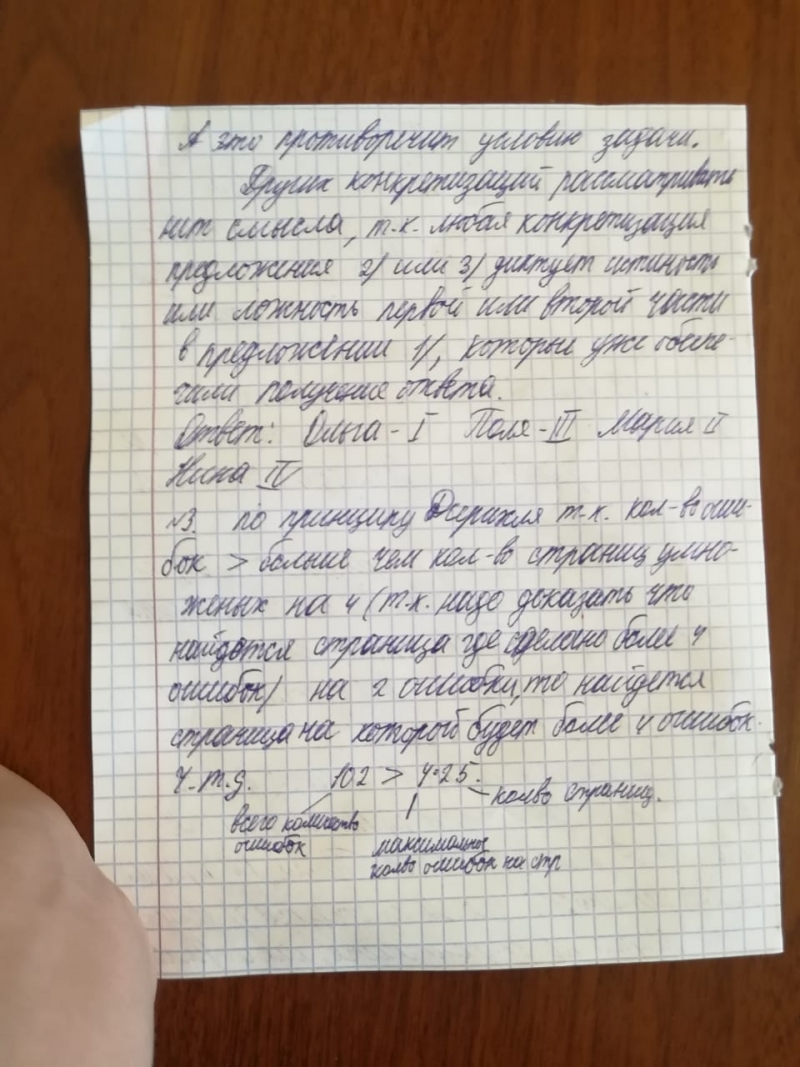 А это противоречит условию задачи.
Других конкретизаций рассматривать
нит смысла, т.к. любая конкретизация
предложения 2/ или 3/ диктует истиность
или ложность первой или второй части
в предложении 1/, которые уже обеспе-
чили получение ответа.
Ответ: Ольга - I Поля - III Мария II
Нина IV
№3. по принципу Дирихля т.к. кол-во оши-
бок > больше чем кол-во страниц умно-
женых на 4 (т.к. надо доказать что
найдется страница где сделано более 4
ошибок) на 2 ошибки, то найдется
страница на которой будет более 4 ошибок.
Ч.т.д. 102 > 4·25.
колво страниц.
всего количество
ошибок
максимальное
колво ошибок на стр